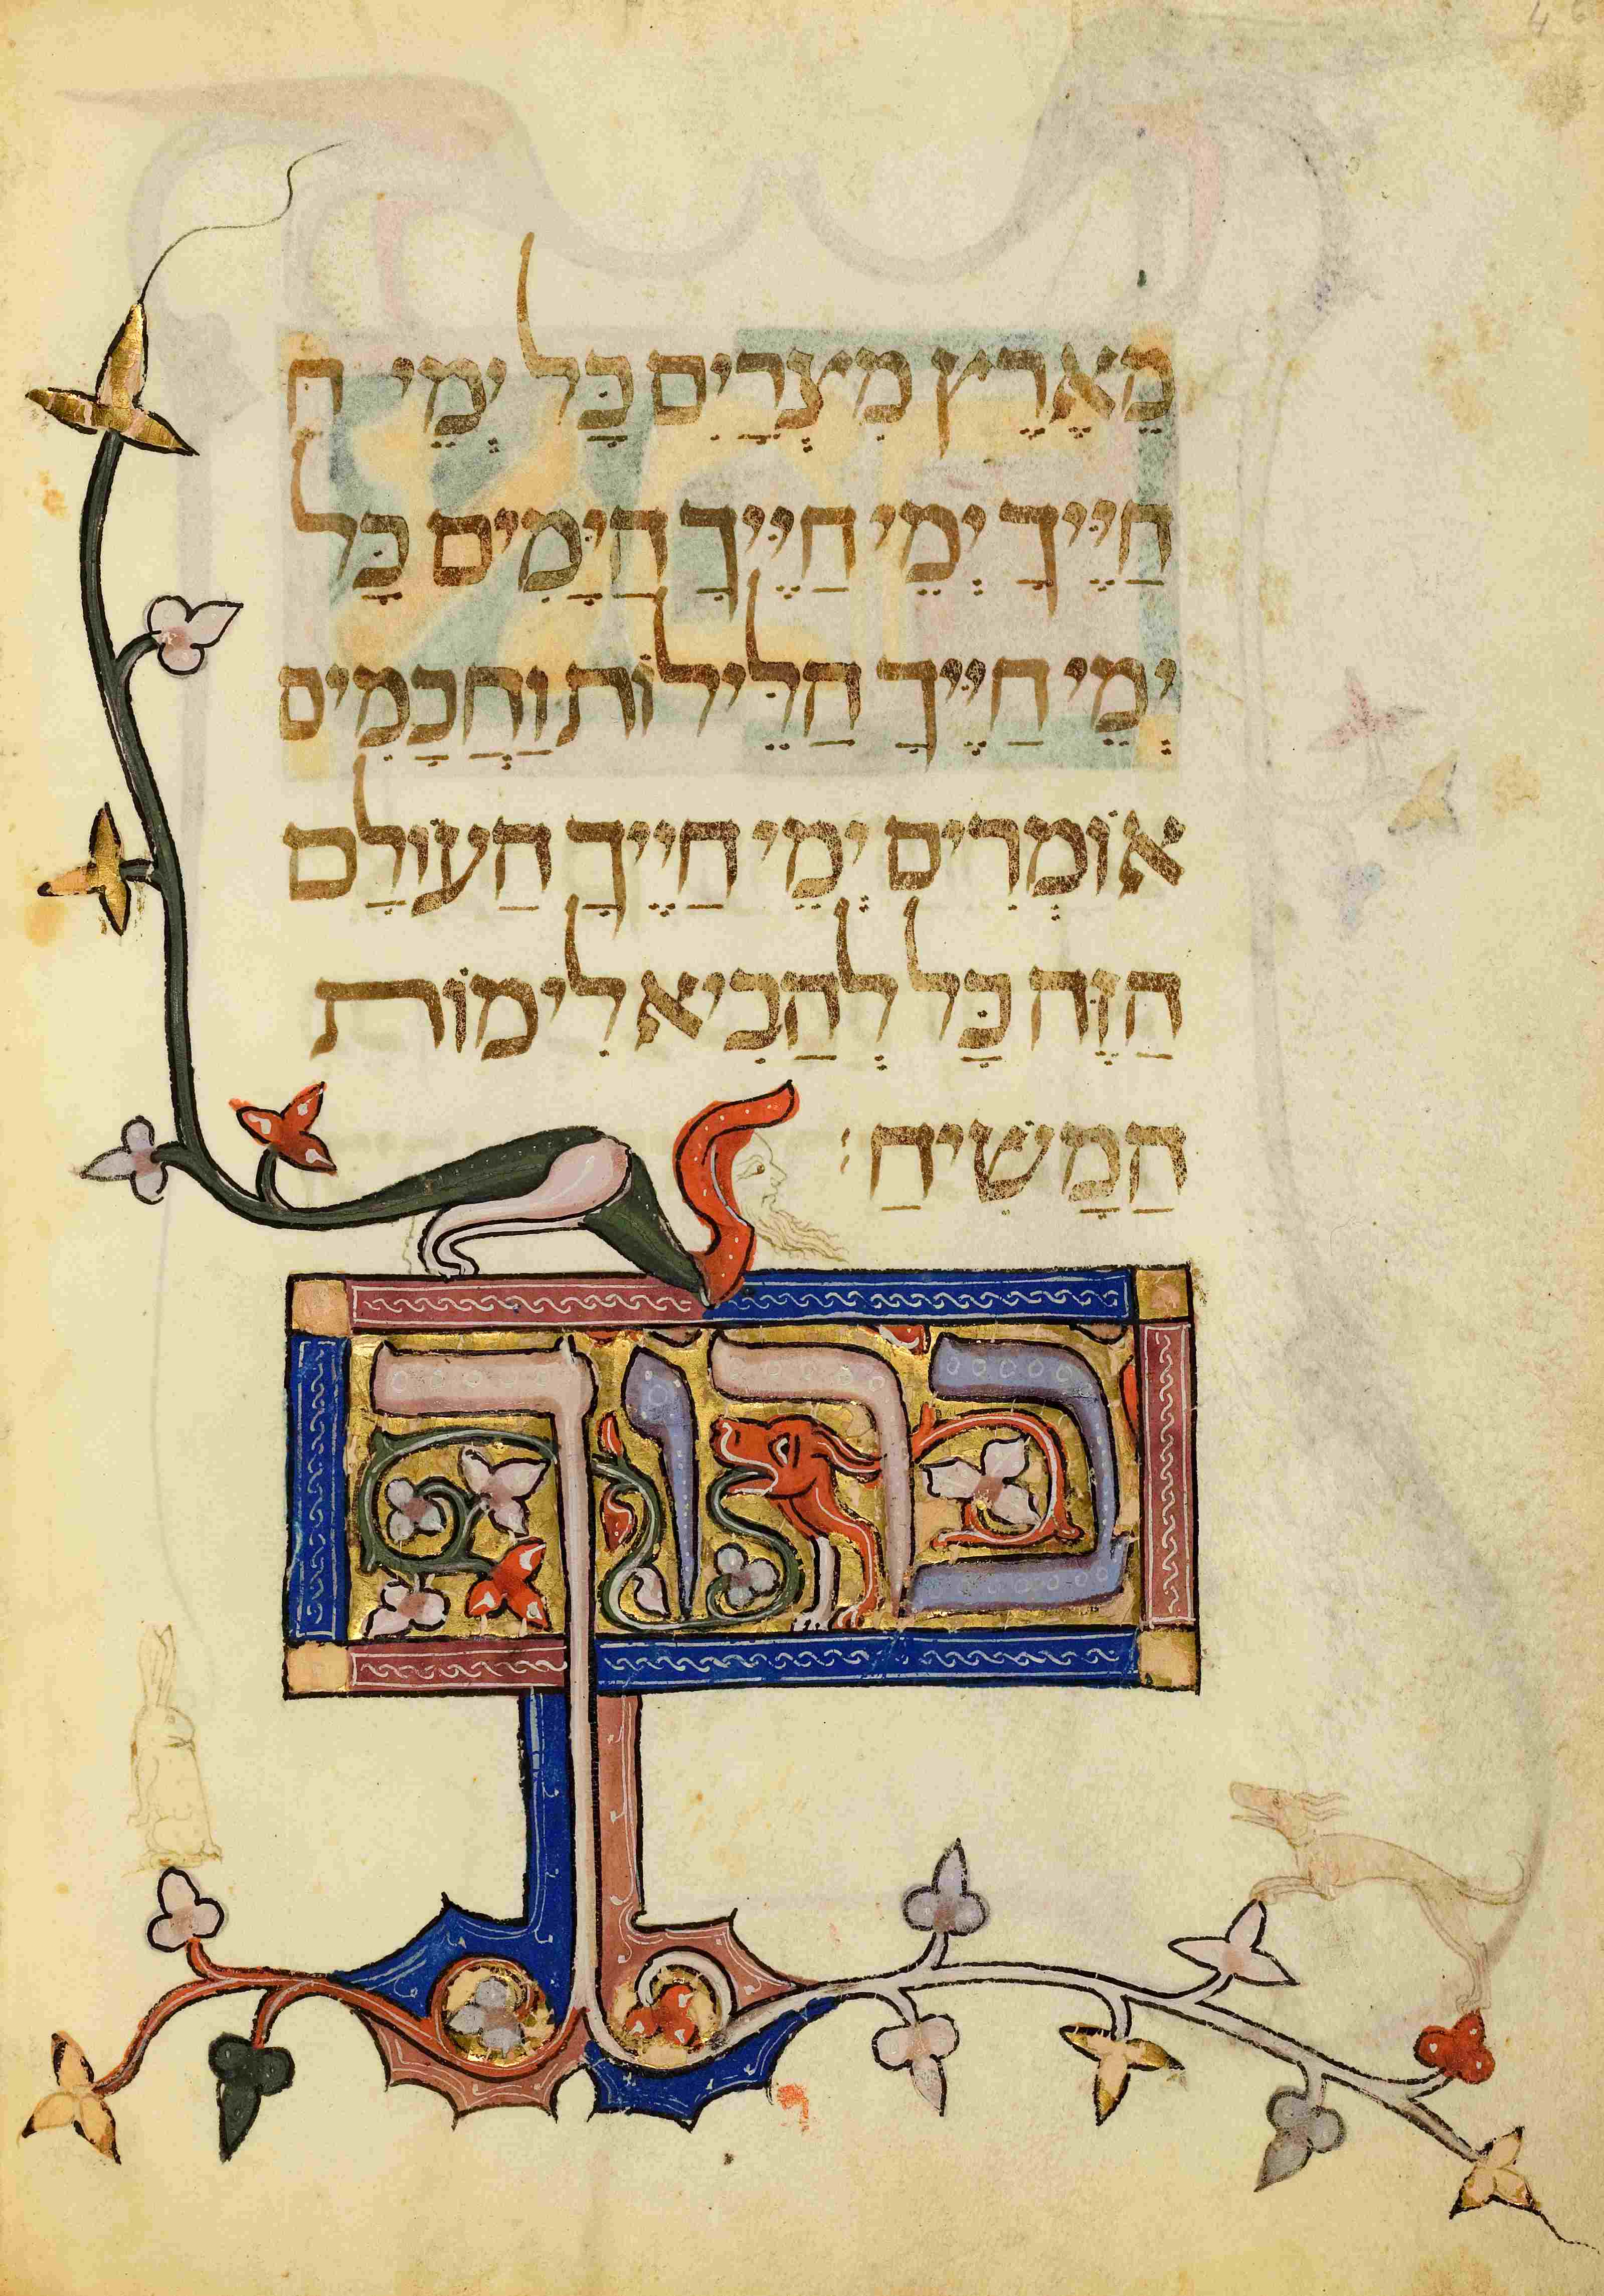 4
מֵאֶרֶץ מִצְרַיִם כָּל יְמֵי ח
חַיֶּיךָ יְמֵי חַיֶּיךָ הַיָּמִים כָּל
יְמֵי חַיֶּיךָ הַלֵּילוֹת וַחֲכָמִים
אוֹמְרִים יְמֵי חַיֶּיךָ הַעוֹלָם
הַזֶּה כָּל לְהַבִיא לִימוֹת
הַמָשִׁיחַ׃
ברוך